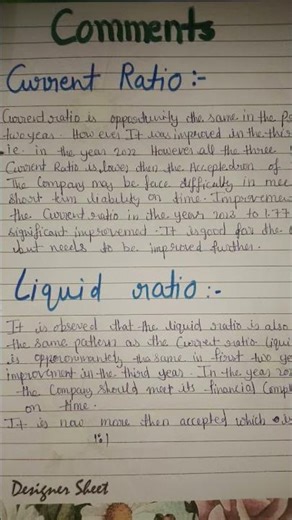 Comments
Current Ratio :-
Current ratio is opportunity the same in the
two year. However It was improved in the
i.e. in the year 2022 However all the three
Current Ratio is lower then the Acceptedron of
The Company may be face diffically in
short turm liability on time. Improvemen
the Current ratio in the year 2023 to 1.77
significant improvement. It is good for the
but needs to be improved further.
Liquid ratio :-
It is obseved that the liquid ratio is also
the same pattern as the Current ratio liqui
is approximantely the same in first two ye
improvement in the third year. In the year 202
the Company should meet its financial Compl
on time.
It is now more then accepted which is
1:1
Designer Sheet